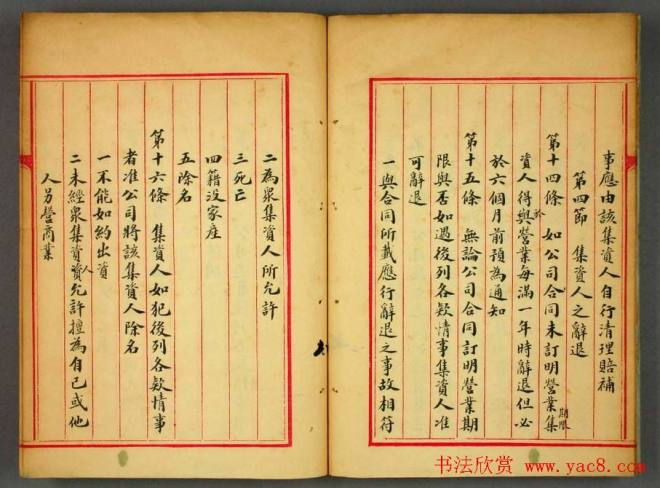 事應由該集資人自行清理賠補
第四節　集資人之辭退
第十四條　如公司於合同未訂明營業期限集
資人得與營業每滿一年時辭退但必
於六個月前預為通知
第十五條　無論公司合同訂明營業期
限與否如遇後列各欵情事集資人准
可辭退
一與合同所載應行辭退之事故相符
二為眾集資人所允許
三死亡
四籍没家産
五除名
第十六條　集資人如犯後列各欵情事
者准公司將該集資人除名
一不能如約出資
二未經眾集資人資允許擅為自己或他
人另營商業
书法欣赏 www.yac8.com